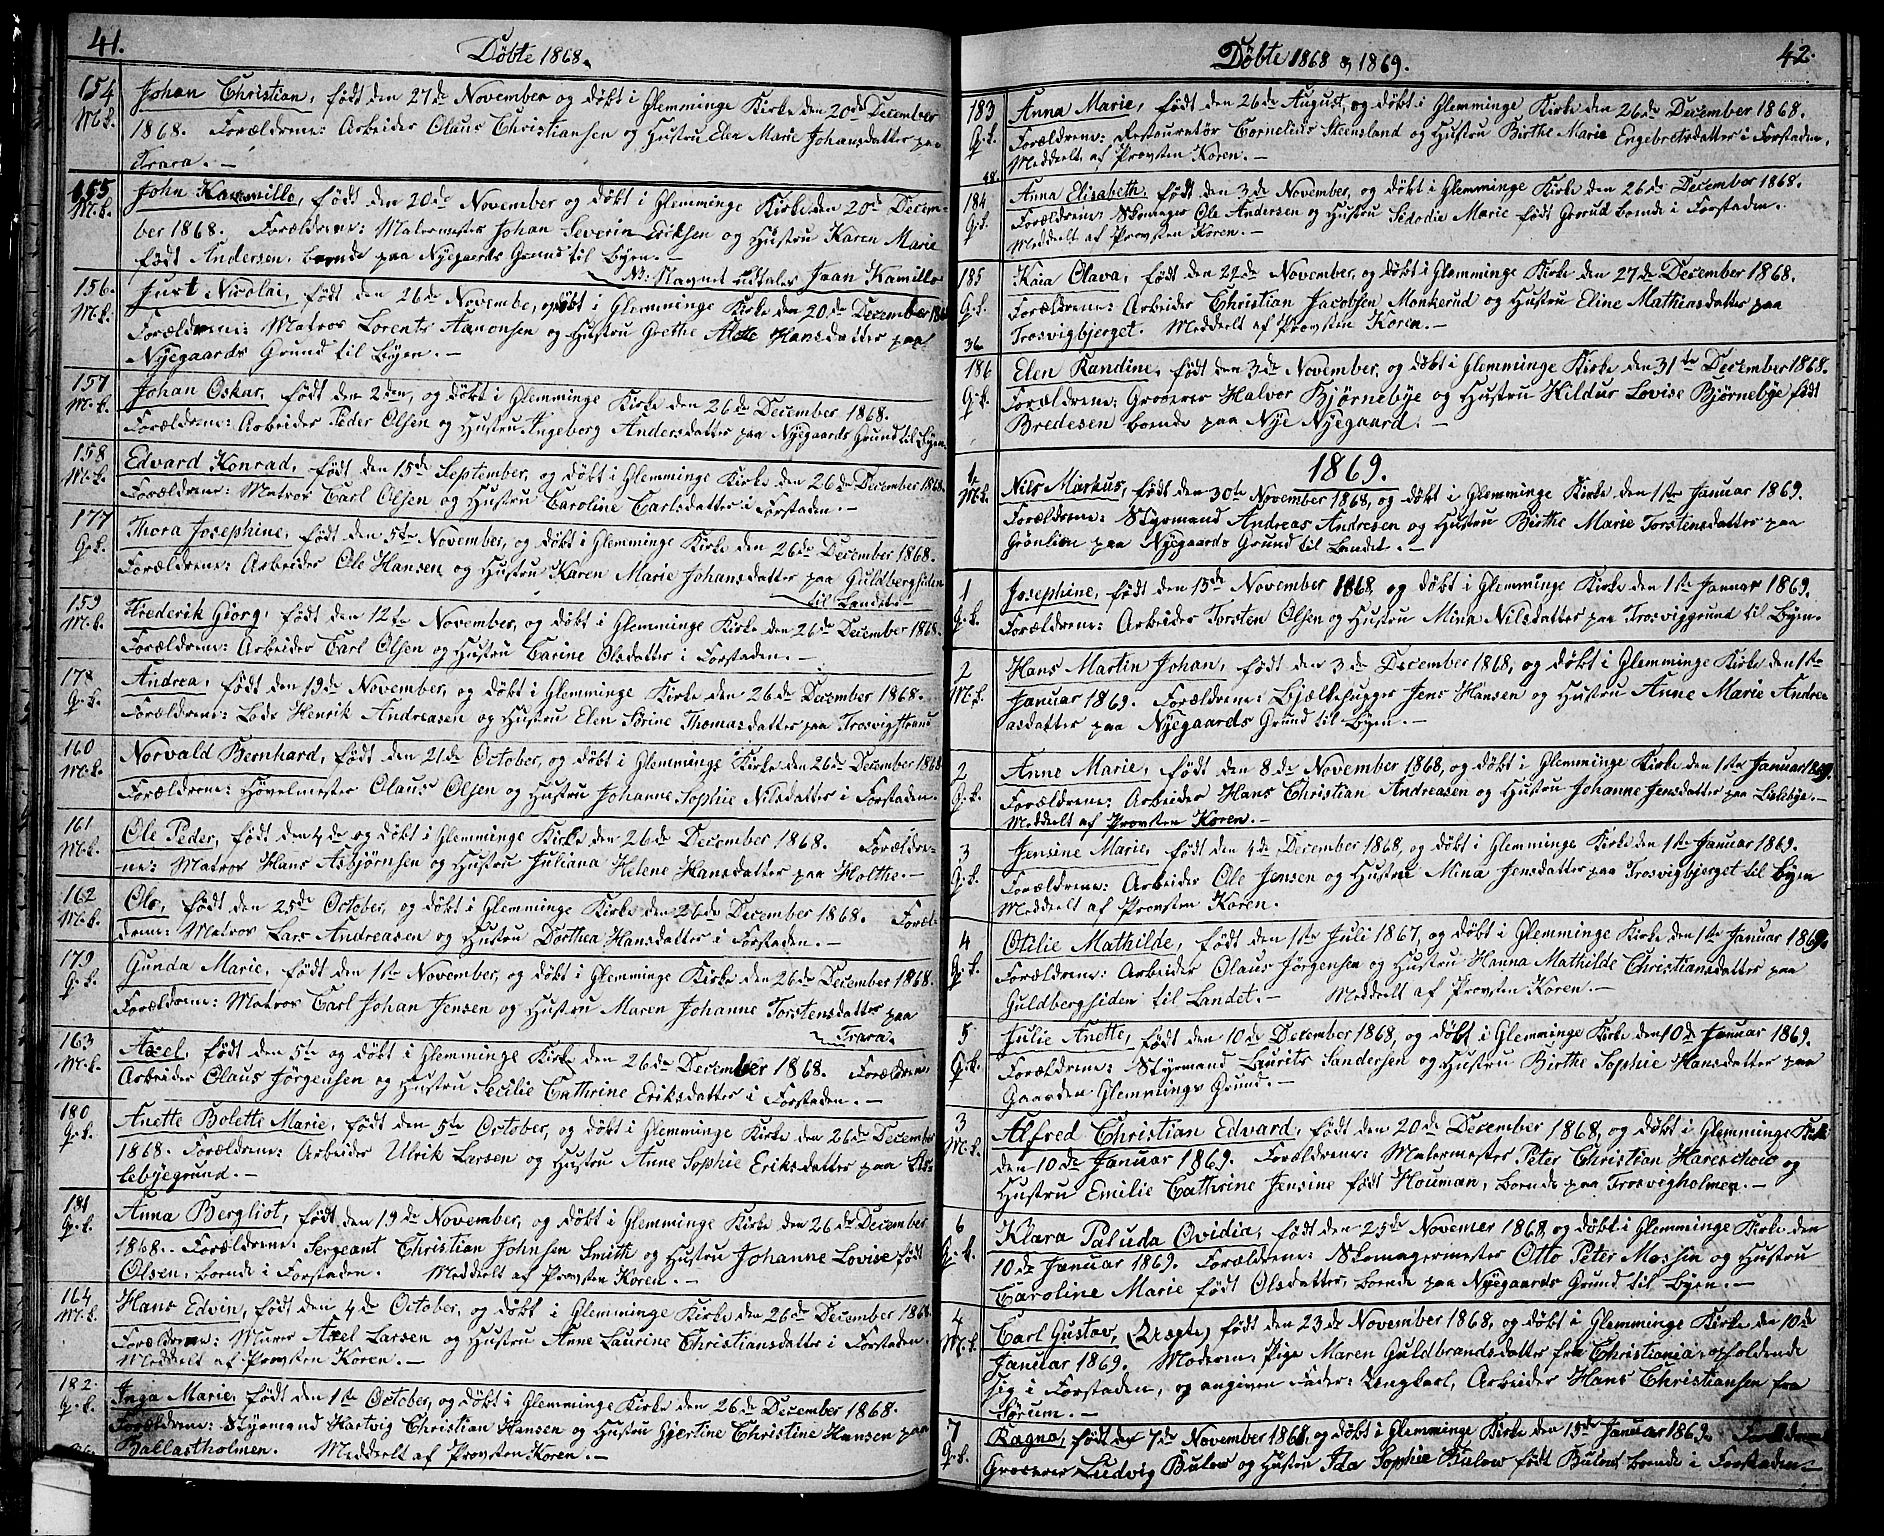 41.
Døbte 1868.
154
M.k.
Johan Christian, født den 27de November og døbt i Glemminge Kirke den 20de December
1868. Forældrene: Arbeider Olaus Christiansen og Hustru Elen Marie Johansdatter paa
Trara. —
155
M.k.
John Kammillo, født den 20de November og døbt i Glemminge Kirke den 20de Decem-
ber 1868. Forældrene: Malermester Johan Severin Eriksen og Hustru Karen Marie
født Andersen, boende paa Nyegaards Grund til Byen. —
NB: Navnet udtales Jaan Kamillo
156.
M.k.
Just Nicolai, født den 26de Novembe, og døbt i Glemminge Kirke den 20de December 1868
Forældrene: Matros Lorents Aanonsen og Hustru Grethe Hansdatter paa
Nyegaards Grund til Byen. —
157
M.k.
Johan Oskar, født den 2den, og døbt i Glemminge Kirke den 26de December 1868.
Forældrene: Arbeider Peder Olsen og Hustru Angeborg Andersdatter paa Nyegaards Grund til Byen
158
M.k.
Edvard Konrad, født den 15de September, og døbt i Glemminge Kirke den 26de December 1868.
Forældrene: Matros Carl Olsen og Hustru Caroline Carlsdatter i Forstaden. —
177
Q.k.
Thora Josephine, født den 5te November, og døbt i Glemminge Kirke den 26de December 1868.
Forældrene: Arbeider Ole Hansen og Hustru Karen Marie Johansdatter paa Guldbergsiden
til Landet. —
159
M.k.
Frederik Giörg, født den 12te November, og døbt i Glemminge Kirke den 26de December 1868.
Forældrene: Arbeider Carl Olsen og Hustru Carine Olsdatter i Forstaden. —
178
Q.k.
Andrea, født den 19de November, og døbt i Glemminge Kirke den 26de December 1868.
Forældrene: Lods Henrik Andreasen og Hustru Elen Sørine Thomasdatter paa Trosvigstrand
160
M.k.
Norvald Bernhard, født den 21de October, og døbt i Glemminge Kirke den 26de December 1868
Forældrene: Høvelmester Olaus Olsen og Hustru Johanne Sophie Nilsdatter i Forstaden.
161
M.k.
Ole Peder, født den 4de og døbt i Glemminge Kirke den 26de December 1868. Forældre-
ne: Matros Hans Asbjørnsen og Hustru Juliana Helene Hansdatter paa Holthe. —
162
M.k.
Ole, født den 25de October, og døbt i Glemminge Kirke den 26de December 1868. Foræl-
drene: Matros Lars Andreasen og Hustru Dorthea Hansdatter i Forstaden. —
179
Q.k.
Gunda Marie, født den 11te November, og døbt i Glemminge Kirke den 26de December 1868.
Forældrene: Matros Carl Johan Jensen og Hustru Maren Johanne Torstensdatter paa
Trara.
163
M.k.
Axel, født den 5te og døbt i Glemminge Kirke den 26de December 1868. Forældrene,
Arbeider Olaus Jörgensen og Hustru Cecilie Cathrine Eriksdatter i Forstaden. —
180
Q.k.
Anette Bolette Marie, født den 5te October, og døbt i Glemminge Kirke den 26de December
1868. Forældrene: Arbeider Ulrik Larsen og Hustru Anne Sophie Eriksdatter paa Lis-
lebyegrund. —
181
Q.k.
Anna Bergliot, født den 19de November, og døbt i Glemminge Kirke den 26de December
1868. Forældrene: Sergeant Christian Johnsen Smith og Hustru Johanne Lovise født
Olsen, boende i Forstaden. Meddelt af Provsten Koren. —
164
M.k.
Hans Edvin, født den 4de October, og døbt i Glemminge Kirke den 26de December 1868.
Forældrene: Murer Axel Larsen og Hustru Anne Laurine Christiansdatter i Forstaden.
Meddelt af Provsten Koren. —
182.
Q.k.
Inga Marie, født den 1ste October, og døbt i Glemminge Kirke den 26de December 1868.
Forældrene: Styrmand Hartvig Christian Hansen og Hustru Gjertine Christine Hansen paa
Ballastholmen. Meddelt af Provsten Koren. —
Døbte 1868 & 1869.
42.
183
Q.k.
Anna Marie, født den 26de August, og døbt i Glemminge Kirke den 26de December 1868.
Forældrene: Restauratør Cornelius Steensland og Hustru Birthe Marie Engebretsdatter i Forstaden.
Meddelt af Provsten Koren. —
48.
184
Q.k.
Anna Elisabeth, født den 3de November, og døbt i Glemminge Kirke den 26de December 1868.
Forældrene: Skomager Ole Andersen og Hustru Sidodie Marie født Grorud boende i Forstaden.
Meddelt af Provsten Koren. —
185
Q.k.
Kaia Olava, født den 22de November, og døbt i Glemminge Kirke den 27de December 1868.
Forældrene: Arbeider Christian Jacobsen Monkerud og Hustru Eline Mathiasdatter paa
Trosvigbjerget. Meddelt af Provsten Koren. —
36
186
Q.k.
Elen Randine, født den 3de November, og døbt i Glemminge Kirke den 31te December 1868.
Forældrene: Grosserer Halvor Bjørnebye og Hustru Hildur Lovise Bjørnebye født
Bredesen boende paa Nye Nyegaard. —
1869.
1
M.k.
Nils Markus, født den 30te November 1868, og døbt i Glemminge Kirke den 1ste Januar 1869.
Forældrene: Styrmand Andreas Andresen og Hustru Birthe Marie Torstensdatter paa
Grønlien paa Nyegaards Grund til Landet. —
1
Q.k.
Josephine, født den 13de November 1868, og døbt i Glemminge Kirke den 1ste Januar 1869.
Forældrene: Arbeider Torsten Olsen og Hustru Mina Nilsdatter paa Trosviggrund til Byen.
2
M.k.
Hans Martin Johan, født den 3de December 1868, og døbt i Glemminge Kirke den 1ste
Januar 1869. Forældrene: Bjælkehugger Jens Hansen og Hustru Anne Marie Andre-
asdatter paa Nyegaards Grund til Byen. —
2
Q.k.
Anne Marie, født den 8de November 1868, og døbt i Glemminge Kirke den 1ste Januar 1869.
Forældrene: Arbeider Hans Christian Andreasen og Hustru Johanne Jensdatter paa Lislebye. —
Meddelt af Provsten Koren. —
3
Q.k.
Jensine Marie, født den 4de December 1868, og døbt i Glemminge Kirke den 1ste Januar 1869.
Forældrene: Arbeider Ole Jensen og Hustru Mina Jensdatter paa Trosvigbjerget til Byen
Meddelt af Provsten Koren.
4
Q.k.
Otilie Mathilde, født den 1ste Juli 1867, og døbt i Glemminge Kirke den 1ste Januar 1869.
Forældrene: Arbeider Olaus Jörgensen og Hustru Hanna Mathilde Christiansdatter paa
Guldbergsiden til Landet. — Meddelt af Provsten Koren. —
5
Q.k.
Julie Anette, født den 10de December 1868, og døbt i Glemminge Kirke den 10de Januar 1869.
Forældrene: Styrmand Laurits Sandersen og Hustru Birthe Sophie Hansdatter paa
Gaarden Glemminge Grund. —
3
M.k.
Alfred Christian Edvard, født den 20de December 1868, og døbt i Glemminge Kirke
den 10de Januar 1869. Forældrene: Malermester Peter Christian Hareschou og
Hustru Emilie Cathrine Jensine født Houman, boende paa Trosvigholmen. —
6
Q.k.
Klara Paluda Ovidia, født den 25de Novemer 1868, og døbt i Glemminge Kirke den
10de Januar 1869. Forældrene: Skomagermester Otto Peter Mossin og Hustru
Caroline Marie født Olsdatter, boende paa Nyegaards Grund til Byen. —
4
M.k.
Carl Gustav, (Uægte) født den 23de November 1868, og døbt i Glemminge Kirke den 10de
Januar 1869. Moderen, Pige Maren Guldbrandsdatter fra Christiania, opholdende
sig i Forstaden, og angiven Fader: Ungkarl, Arbeider Hans Christiansen fra
Sørum. —
7
Q.k.
Ragna, født den 7de November 1868, og døbt i Glemminge Kirke den 15de Januar 1869. Forældrene
Grosserer Ludvig Bulow og Hustru Ida Sophie Bulow født Bulow boende i Forstaden. —